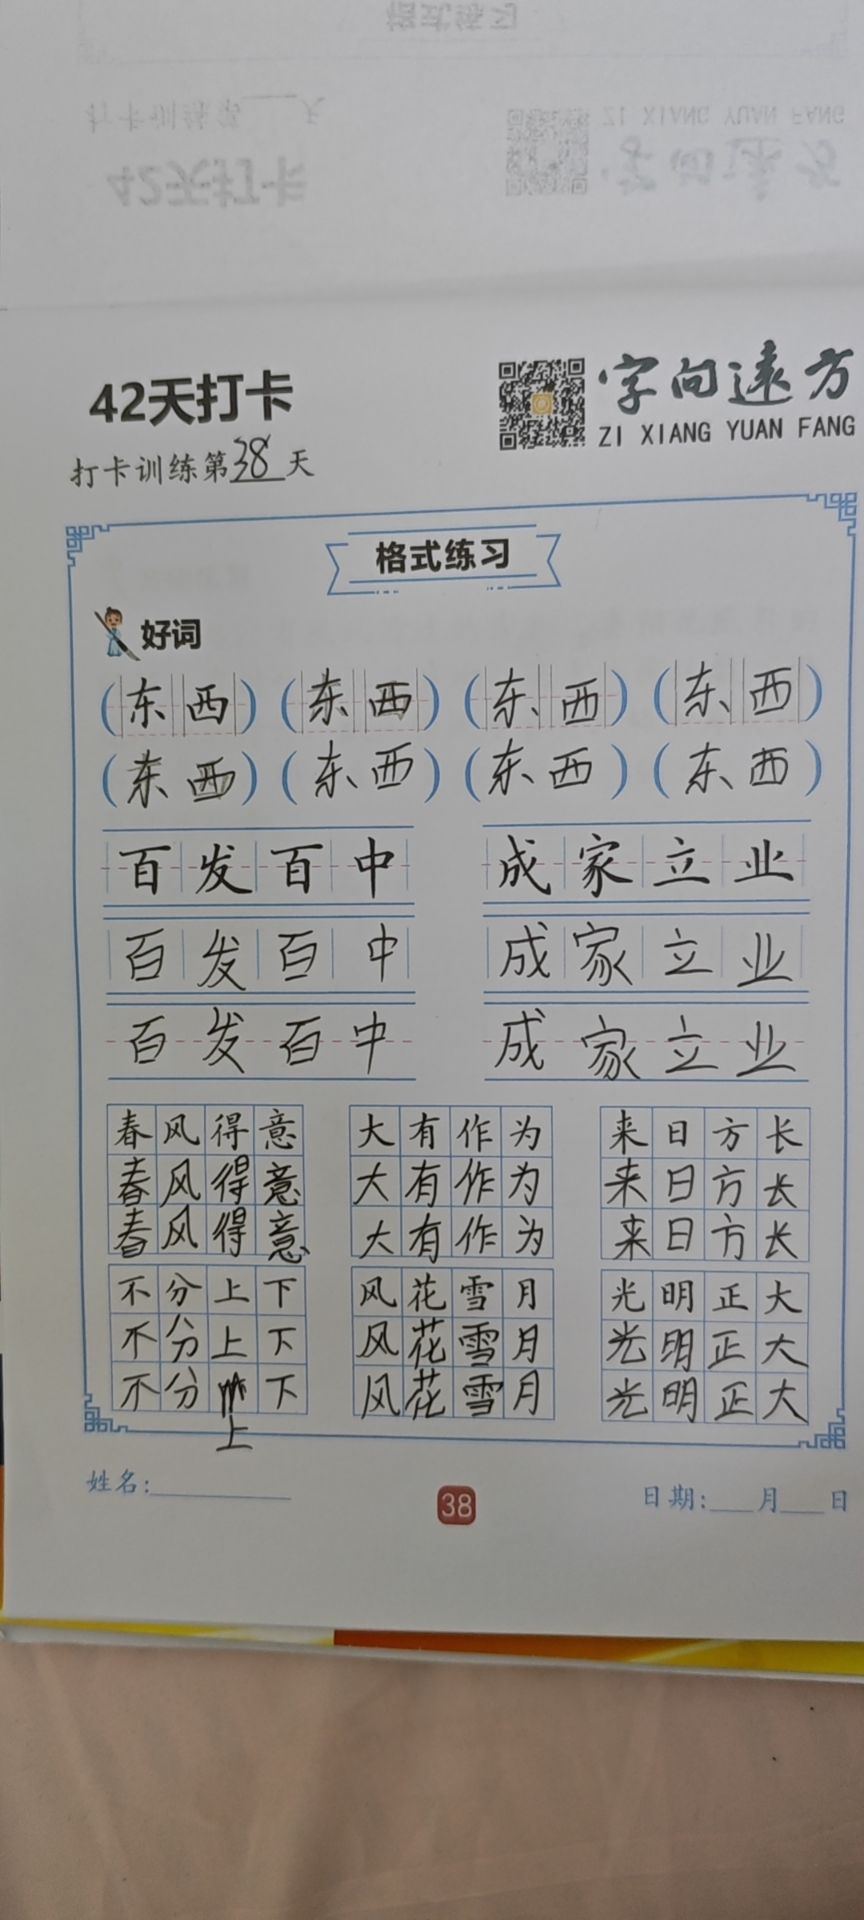 42天打卡
字向遠方
ZI XIANG YUAN FANG
打卡训练第38天
格式练习
好词
(东西) (东西) (东西) (东西)
(东西) (东西) (东西) (东西)
百发百中 成家立业
百发百中 成家立业
百发百中 成家立业
春风得意 大有作为 来日方长
春风得意 大有作为 来日方长
春风得意 大有作为 来日方长
不分上下 风花雪月 光明正大
不分上下 风花雪月 光明正大
不分 下 风花雪月 光明正大
上
姓名:
38
日期: 月 日